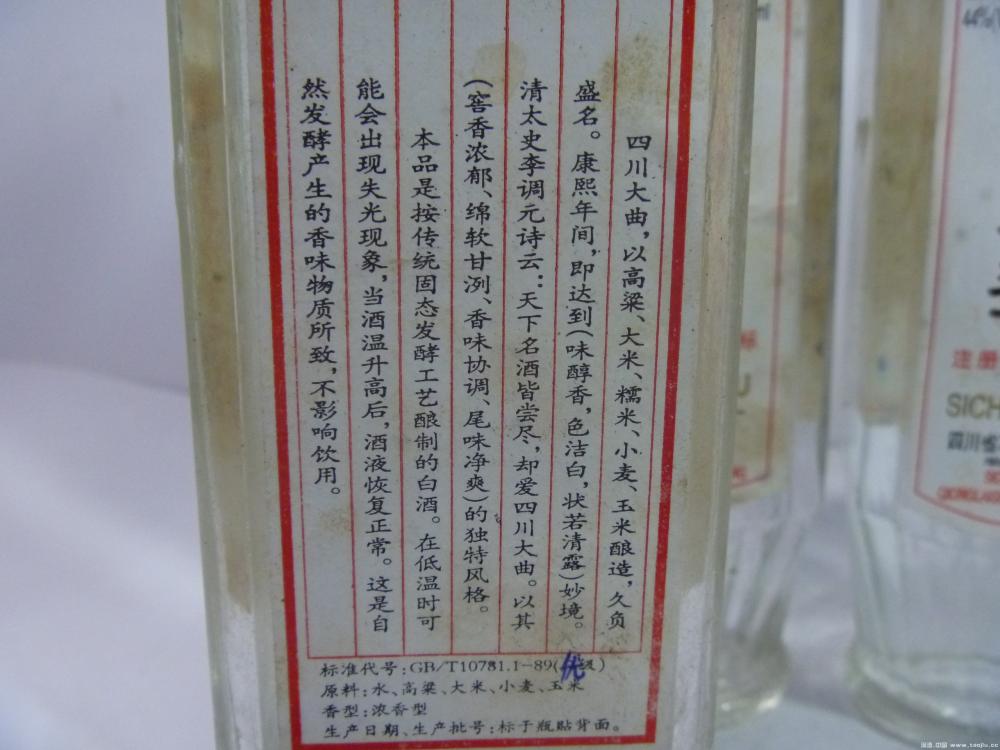 四川大曲，以高粱、大米、糯米、小麦、玉米酿造，久负
盛名。康熙年间，即达到(味醇香，色洁白，状若清露)妙境。
清太史李调元诗云：天下名酒皆尝尽，却爱四川大曲。以其
(窖香浓郁、绵软甘洌、香味协调、尾味净爽)的独特风格。
本品是按传统固态发酵工艺酿制的白酒。在低温时可
能会出现失光现象，当酒温升高后，酒液恢复正常。这是自
然发酵产生的香味物质所致，不影响饮用。
标准代号：GB/T10781.1-89(优级)
原料：水、高粱、大米、小麦、玉米
香型：浓香型
生产日期、生产批号：标于瓶贴背面。
44%
ml
标
U
注册
SICH
四川省
QIONGLAI